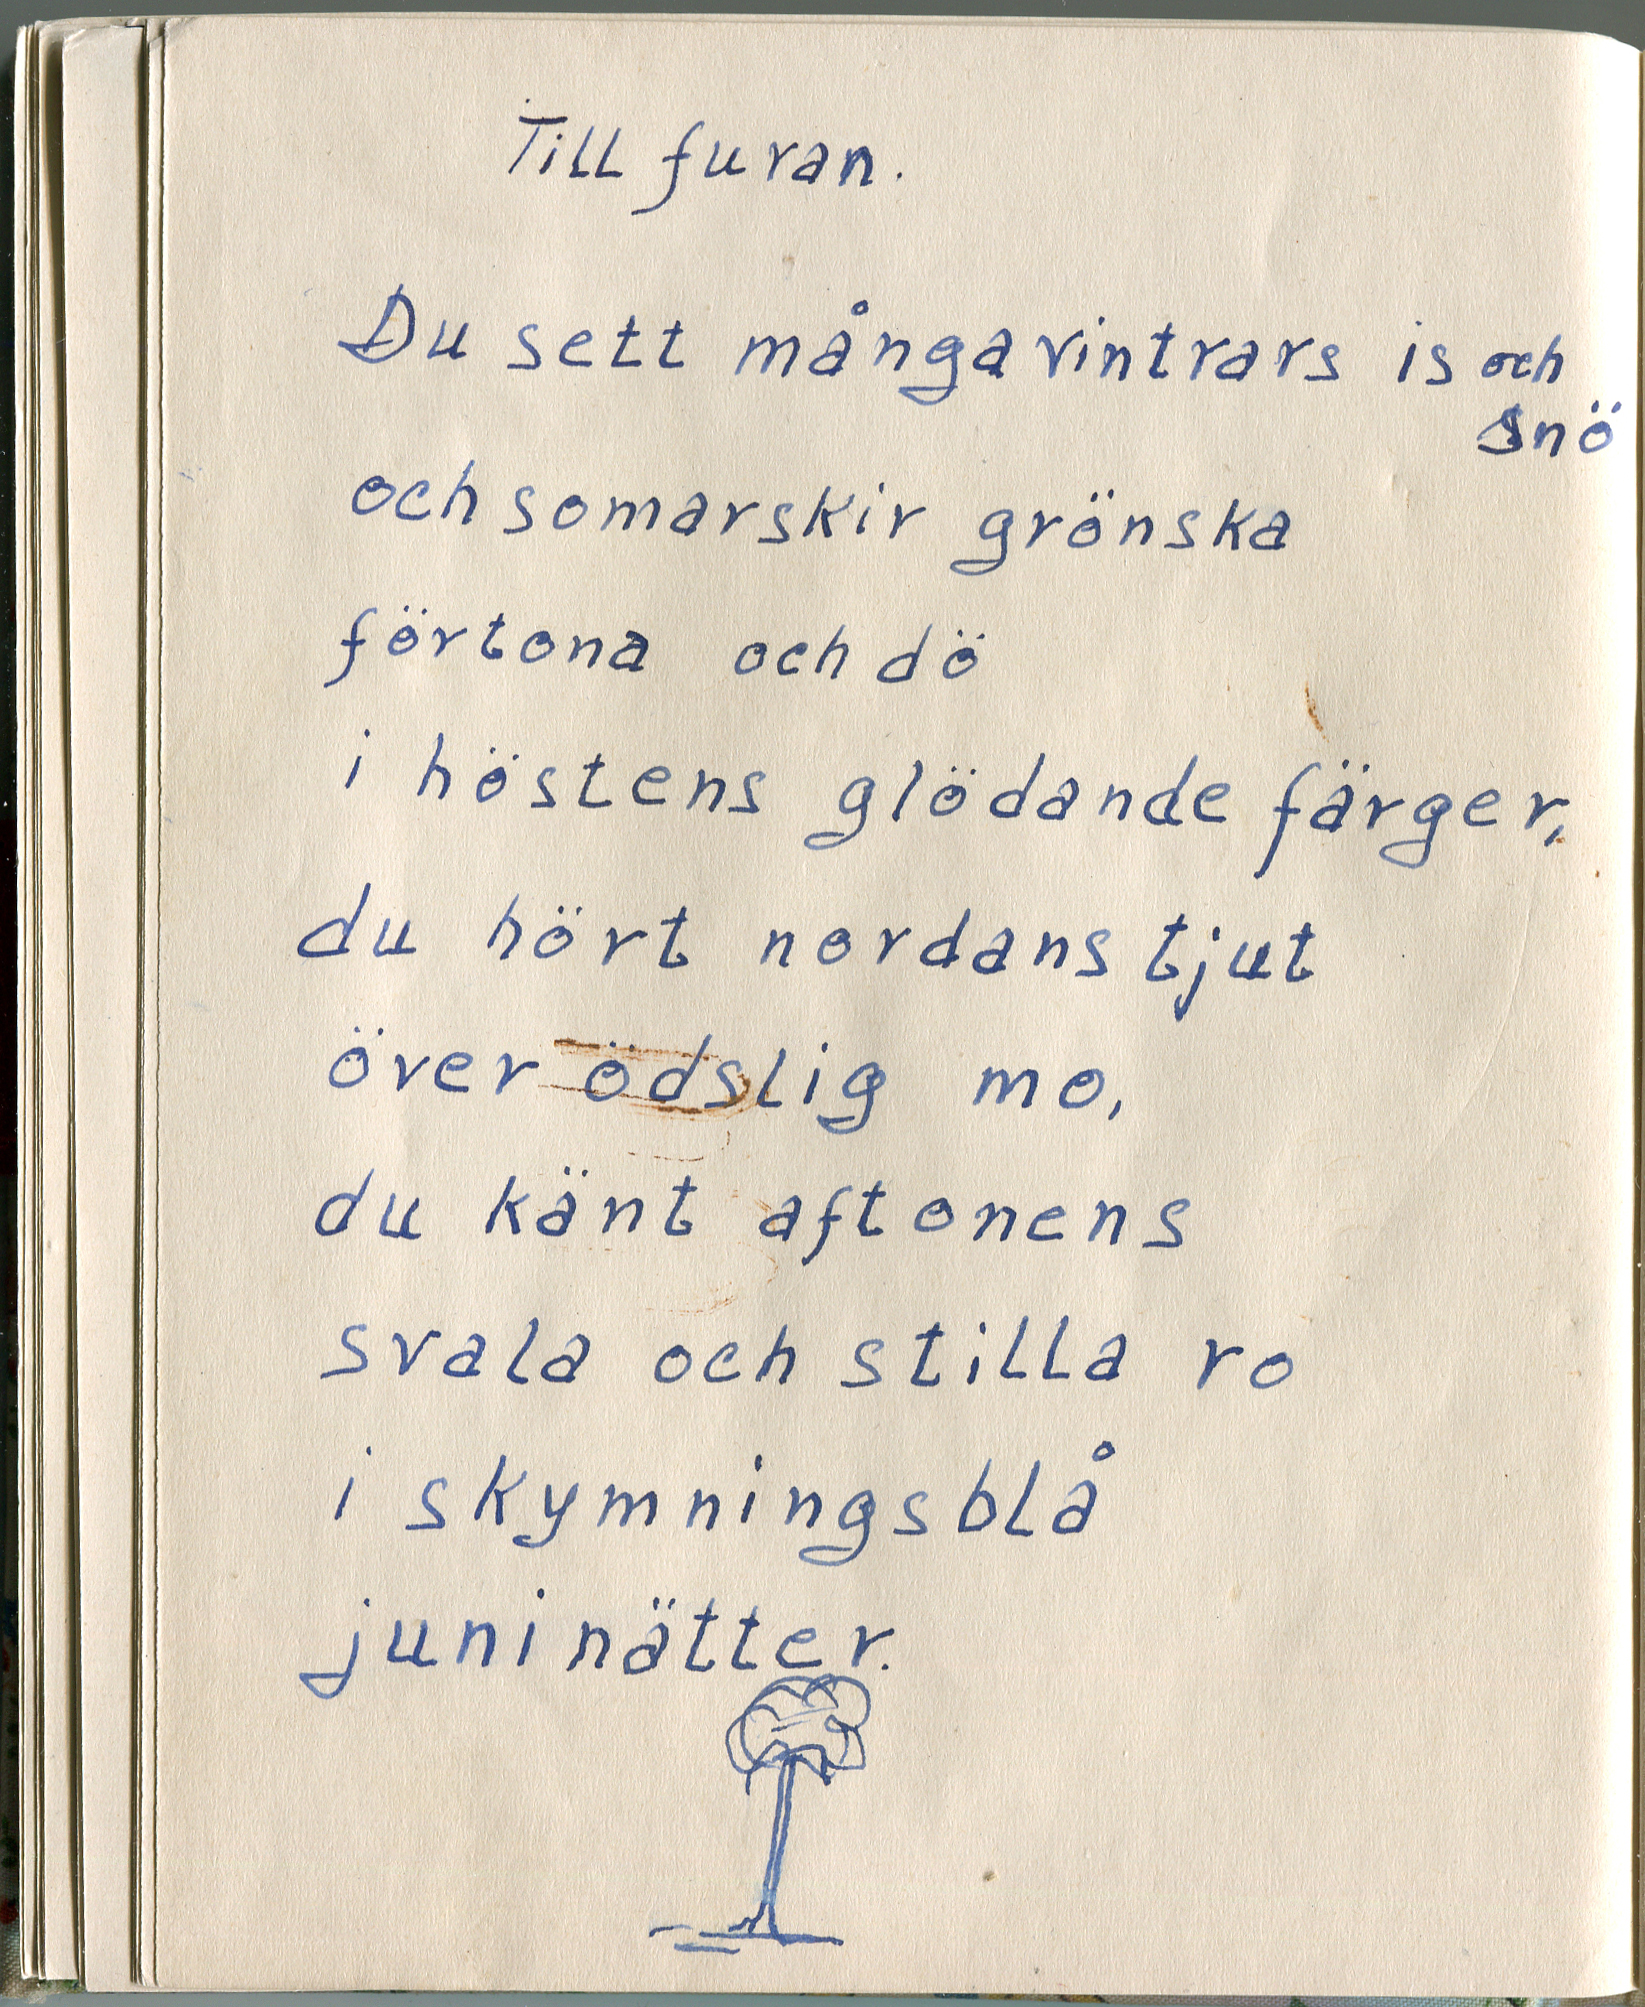 Till furan.
Du sett många vintrars is och
snö
och somarskir grönska
förtona och dö
i höstens glödande färger,
du hört nordans tjut
över ödslig mo,
du känt aftonens
svala och stilla ro
i skymningsblå
juninätter.